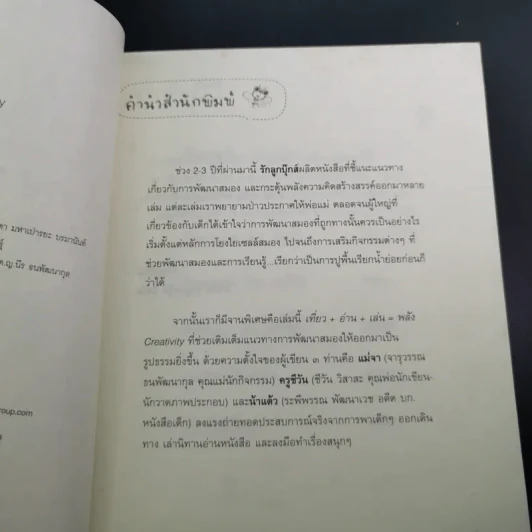 y
า มหาเปารยะ บรรณานันต์
ธนพัฒนากุล
roup.com
คำนำสำนักพิมพ์
ช่วง 2-3 ปีที่ผ่านมานี้ รักลูกบุ๊กส์ผลิตหนังสือที่ชี้แนะแนวทาง
เกี่ยวกับการพัฒนาสมอง และกระตุ้นพลังความคิดสร้างสรรค์ออกมาหลาย
เล่ม แต่ละเล่มเราพยายามป่าวประกาศให้พ่อแม่ ตลอดจนผู้ใหญ่ที่
เกี่ยวข้องกับเด็กได้เข้าใจว่าการพัฒนาสมองที่ถูกทางนั้นควรเป็นอย่างไร
เริ่มตั้งแต่หลักการโยงใยเซลล์สมอง ไปจนถึงการเสริมกิจกรรมต่างๆ ที่
ช่วยพัฒนาสมองและการเรียนรู้...เรียกว่าเป็นการปูพื้นเรียกน้ำย่อยก่อนก็
ว่าได้
จากนั้นเราก็มีจานพิเศษคือเล่มนี้ เที่ยว + อ่าน + เล่น = พลัง
Creativity ที่ช่วยเติมเต็มแนวทางการพัฒนาสมองให้ออกมาเป็น
รูปธรรมยิ่งขึ้น ด้วยความตั้งใจของผู้เขียน ๓ ท่านคือ แม่จา (จารุวรรณ
ธนพัฒนากุล คุณแม่นักกิจกรรม) ครูชีวัน (ชีวัน วิสาสะ คุณพ่อนักเขียน-
นักวาดภาพประกอบ) และน้าแต้ว (ระพีพรรณ พัฒนาเวช อดีต บก.
หนังสือเด็ก) ลงแรงถ่ายทอดประสบการณ์จริงจากการพาเด็กๆ ออกเดิน
ทาง เล่านิทานอ่านหนังสือ และลงมือทำเรื่องสนุกๆ